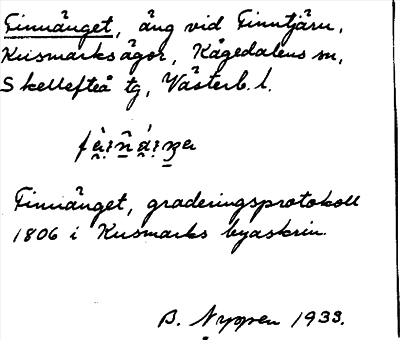 Finnänget, äng vid Finntjärn,
Kusmarksägor, Kågedalens sn,
Skellefteå tg, Västerb. l.
Finnänget, graderingsprotokoll
1806 i Kusmarks byaskrin.
B. Nyppen 1933.